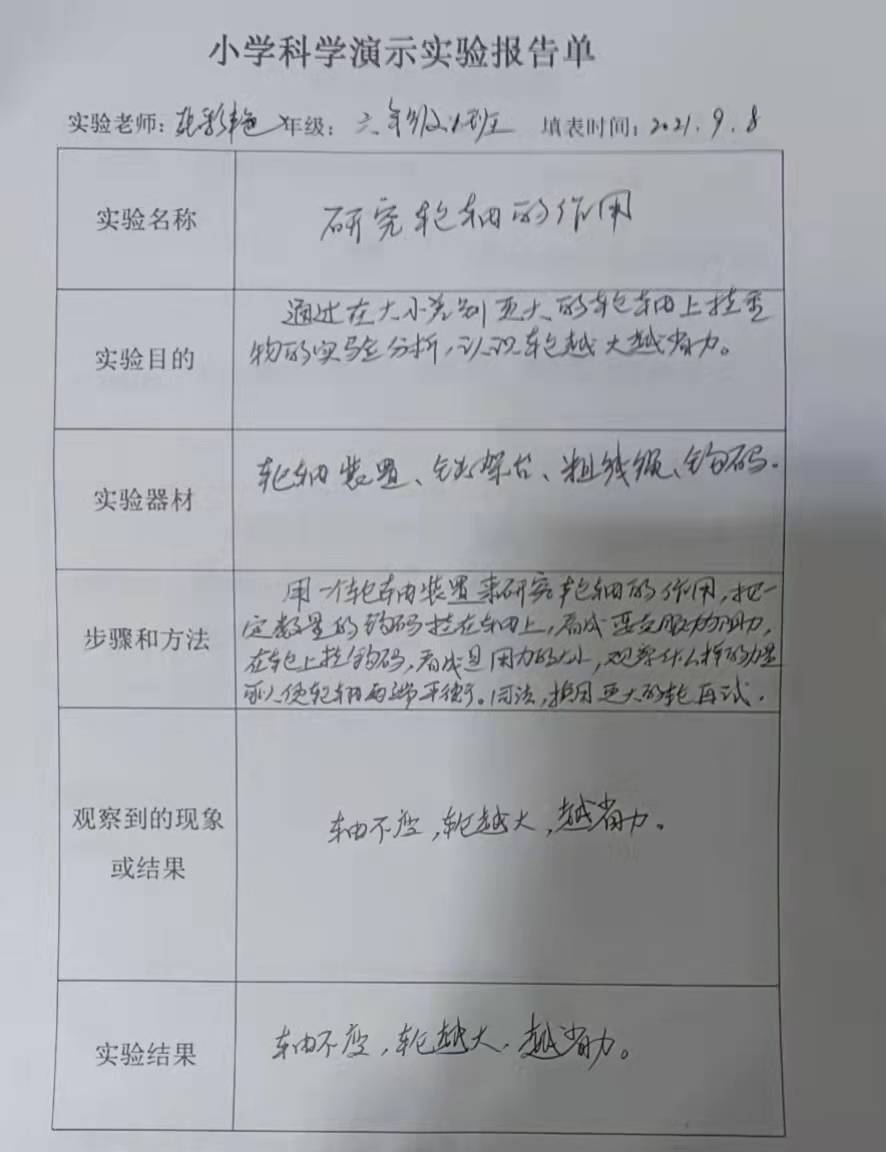 小学科学演示实验报告单
实验老师: 彩艳 年级: 六年级 班 填表时间: 2021.9.8
实验名称
研究轮轴的作用
实验目的
通过在大小差别更大的轮轴上挂重
物的实验分析,认识轮越大越省力。
实验器材
轮轴装置、铁架台、粗线绳、钩码.
步骤和方法
用一个轮轴装置来研究轮轴的作用,把一
定数量的钩码挂在轴上,看成要克服的阻力,
在轮上挂钩码,看成是用力的大小,观察什么样的力量
可以使轮轴两端平衡。同法,换用更大的轮再试.
观察到的现象
或结果
轴不变,轮越大,越省力。
实验结果
轴不变,轮越大,越省力。